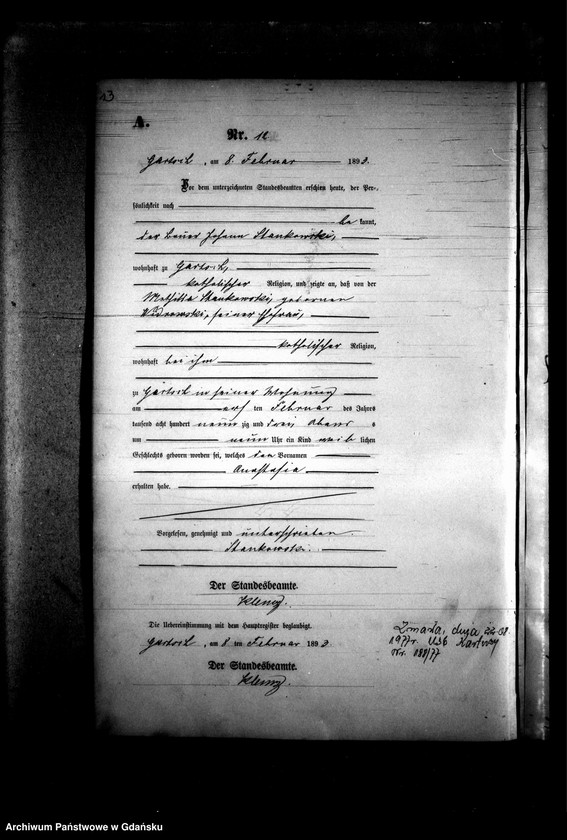 13
A.
Nr. 12
Gartsch, am 8. Februar 1893.
Vor dem unterzeichneten Standesbeamten erschien heute, der Per-
sönlichkeit nach
be kannt,
der Bauer Johann Stankowski,
wohnhaft zu Gartsch,
katholischer Religion, und zeigte an, daß von der
Mathilda Stankowski, geborenen
seiner Ehefrau,
katholischer Religion,
wohnhaft bei ihm
zu Gartsch in seiner Wohnung
am ten Februar des Jahres
tausend acht hundert neun zig und drei Abend s
um neun Uhr ein Kind weib lichen
Geschlechts geboren worden sei, welches den Vornamen
Anastasia
erhalten habe.
Vorgelesen, genehmigt und unterschrieben.
Stankowski.
Der Standesbeamte.
Klemp.
Die Uebereinstimmung mit dem Hauptregister beglaubigt.
Gartsch, am 8 ten Februar 1893
Der Standesbeamte.
Klemp.
Zmarła, dnia 22.
1977r. USC Kartuzy
Nr. 188/77
Archiwum Państwowe w Gdańsku